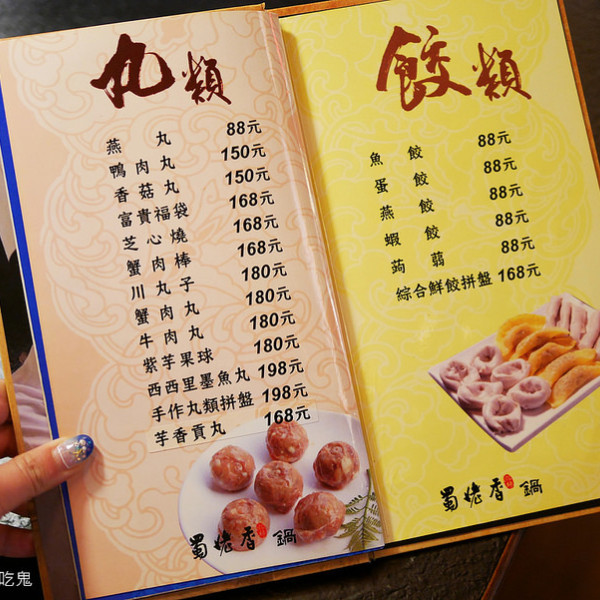 丸類
燕丸 88元
鴨肉丸 150元
香菇丸 150元
富貴福袋 168元
芝心燒 168元
蟹肉棒 168元
川丸子 180元
蟹肉丸 180元
牛肉丸 180元
紫芋果球 180元
西西里墨魚丸 198元
手作丸類拼盤 198元
芋香貢丸 168元
蜀姥香 鍋
餃類
魚餃 88元
蛋餃 88元
燕餃 88元
蝦餃 88元
蒟蒻 88元
綜合鮮餃拼盤 168元
蜀姥香 鍋
吃鬼